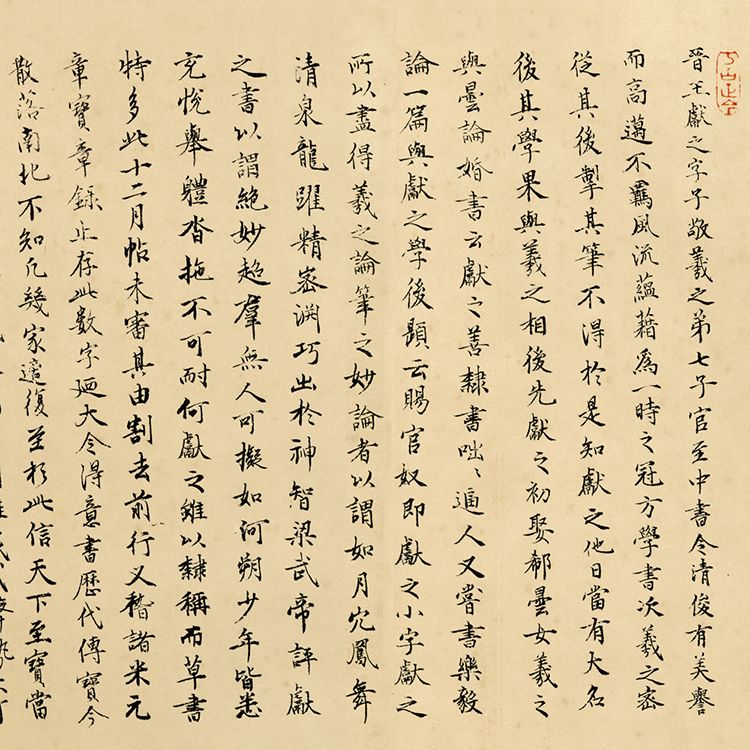 晉王獻之字子敬羲之第七子官至中書令清俊有美譽
而高邁不羈風流蘊藉為一時之冠方學書次羲之密
從其後掣其筆不得於是知獻之他日當有大名
後其學果與羲之相後先獻之初娶郗曇女羲之
與曇論婚書云獻之善隸書咄〻逼人又嘗書樂毅
論一篇與獻之學後題云賜官奴即獻之小字獻之
所以盡得羲之論筆之妙論者以謂如丹穴鳳舞
清泉龍躍精密淵巧出於神智梁武帝評獻
之書以謂絕妙超羣無人可擬如河朔少年皆悉
充悅舉體沓拖不可耐何獻之雖以隸稱而草書
特多此十二月帖未審其由割去前行又稽諸米元
章寶章錄止存此數字廼大令得意書歷代傳寶今
散落南北不知凡幾家適復至於此信天下至寶當